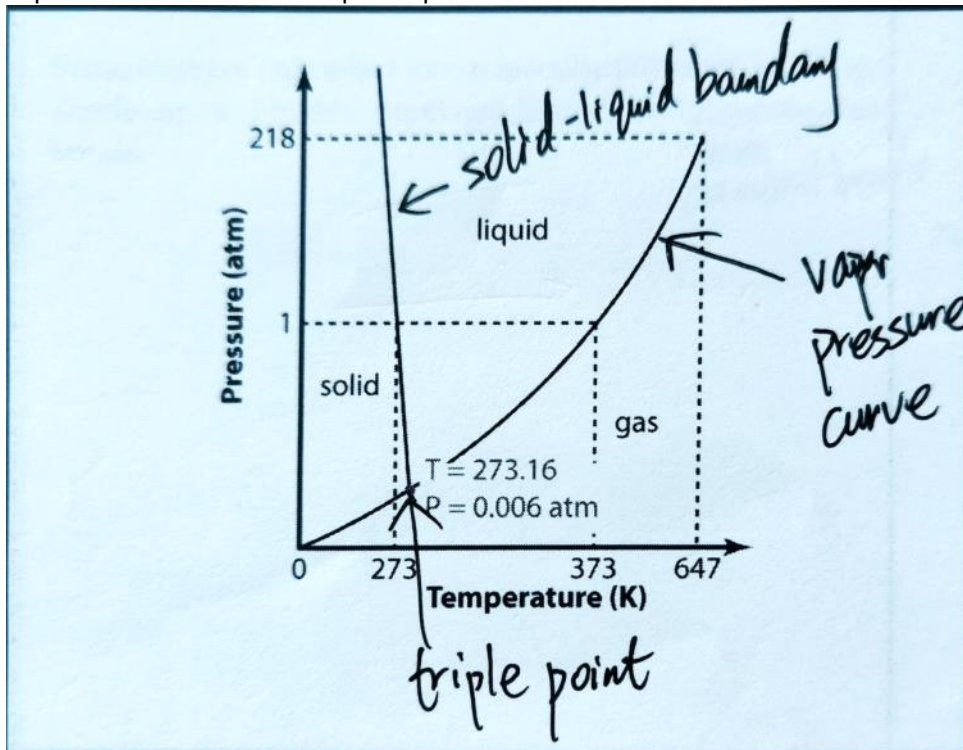 solid-liquid boundary
218
liquid
Pressure (atm)
vapor
pressure
curve
1
solid
gas
T = 273.16
P = 0.006 atm
0
273
373
647
Temperature (K)
triple point